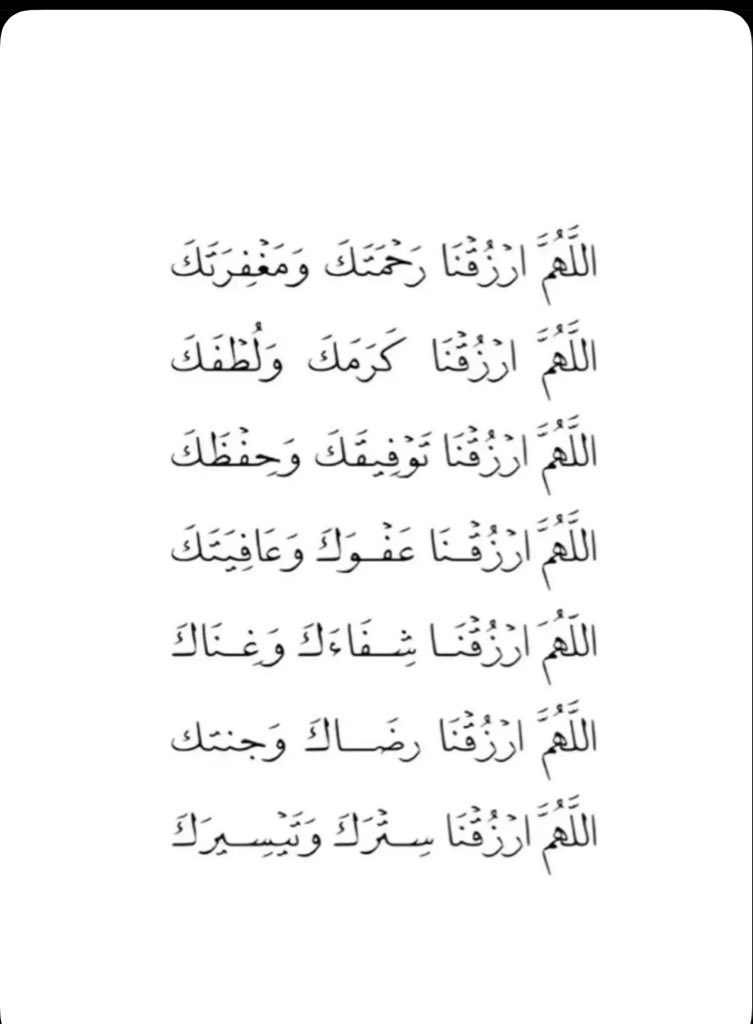 اللَّهُمَّ ارْزُقْنَا رَحْمَتَكَ وَمَغْفِرَتَكَ
اللَّهُمَّ ارْزُقْنَا كَرَمَكَ وَلُطْفَكَ
اللَّهُمَّ ارْزُقْنَا تَوْفِيقَكَ وَحِفْظَكَ
اللَّهُمَّ ارْزُقْـنَا عَفْـوَكَ وَعَافِيَتَكَ
اللَّهُمَّ ارْزُقْنَـا شِـفَاءَكَ وَغِـنَاكَ
اللَّهُمَّ ارْزُقْنَا رضَـــاكَ وَجنتك
اللَّهُمَّ ارْزُقْنَا سِـتْرَكَ وَتَيْسِـيرَكَ